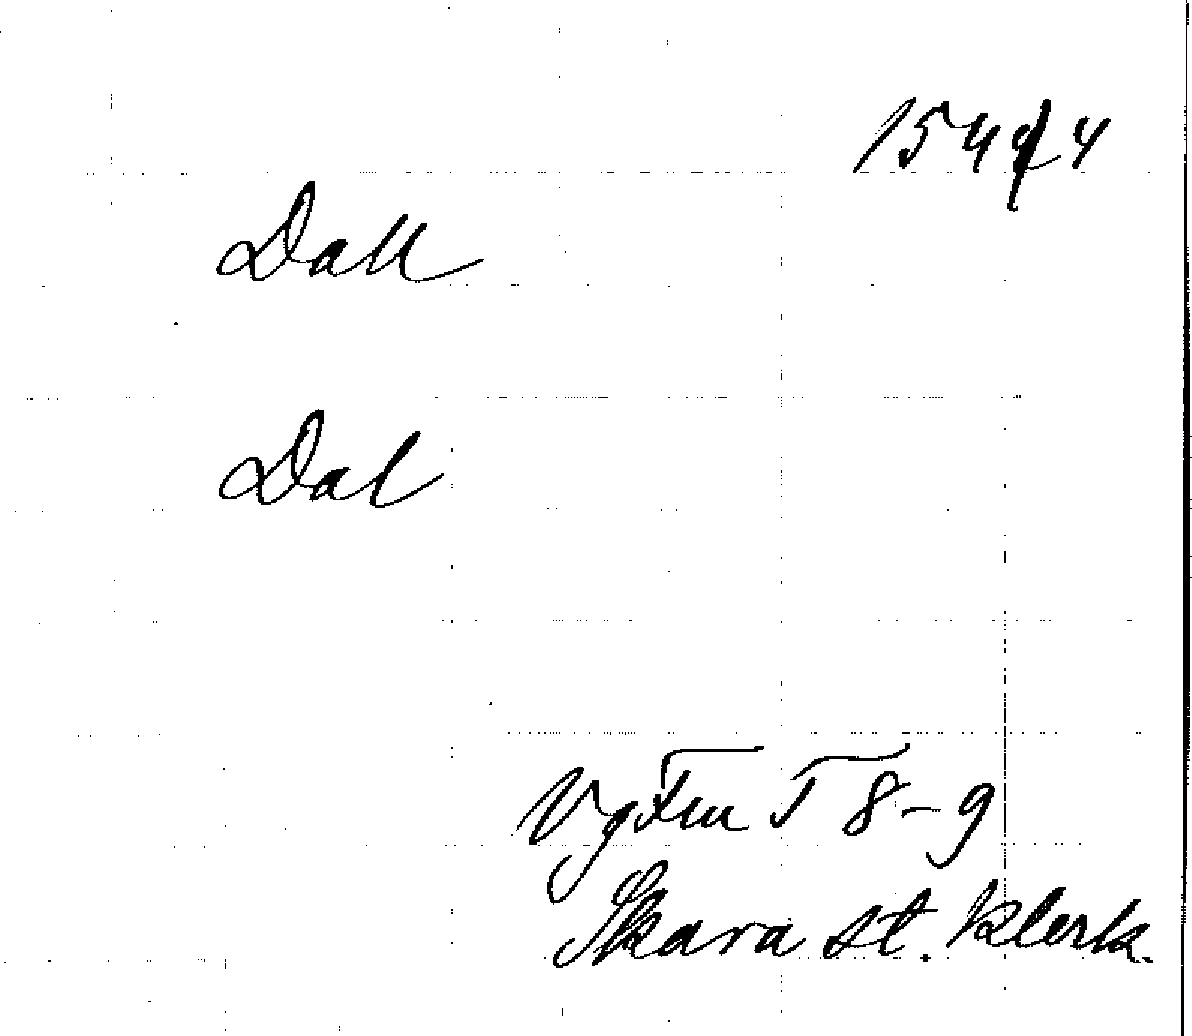 1544
Dall
Dal
VgFmT 8-9
Skara st. klerk.